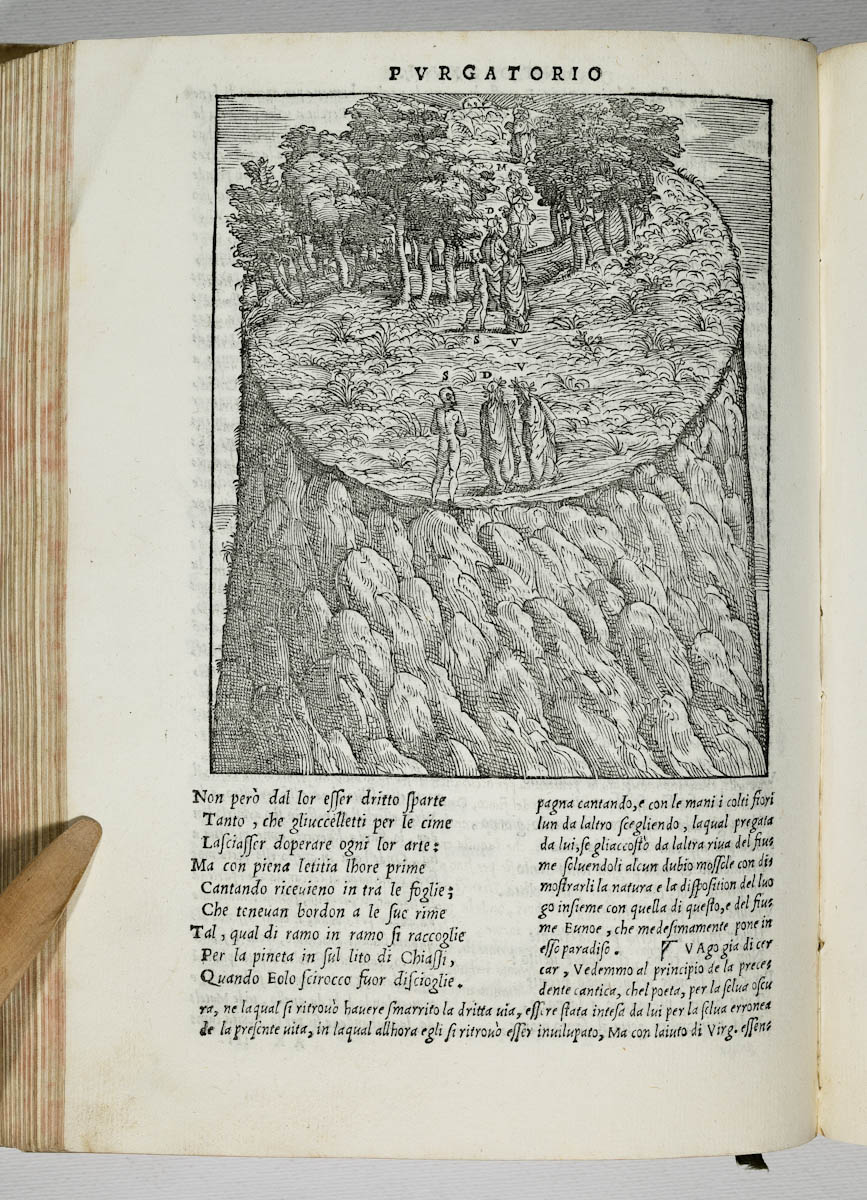 PVRGATORIO
M
D
S V
S D V
Non però dal lor eſſer dritto ſparte
Tanto, che gliuccelletti per le cime
Laſciaſſer doperare ogni lor arte:
Ma con piena letitia lhore prime
Cantando ricevieno in tra le foglie;
Che tenevan bordon a le ſue rime
Tal, qual di ramo in ramo ſi raccoglie
Per la pineta in ſul lito di Chiaſſi,
Quando Eolo ſcirocco fuor diſcioglie.
pagna cantando, e con le mani i colti fiori
lun da laltro ſcegliendo, laqual pregata
da lui, ſe gliaccoſtò da laltra riva del fiu=
me ſoluendoli alcun dubio moſſole con di=
moſtrarli la natura e la diſpoſition del luo
go inſieme con quella di queſto, e del fiu=
me Eunoe, che medeſimamente pone in
eſſo paradiſo. VAgo gia di cer
car, Vedemmo al principio de la prece=
dente cantica, chel poeta, per la ſelua oſcu
ra, ne laqual ſi ritrouò hauere ſmarrito la dritta uia, eſſere ſtata inteſa da lui per la ſelua erronea
de la preſente uita, in laqual allhora egli ſi ritrouò eſſer inuilupato, Ma con laiuto di Virg. eſſen=